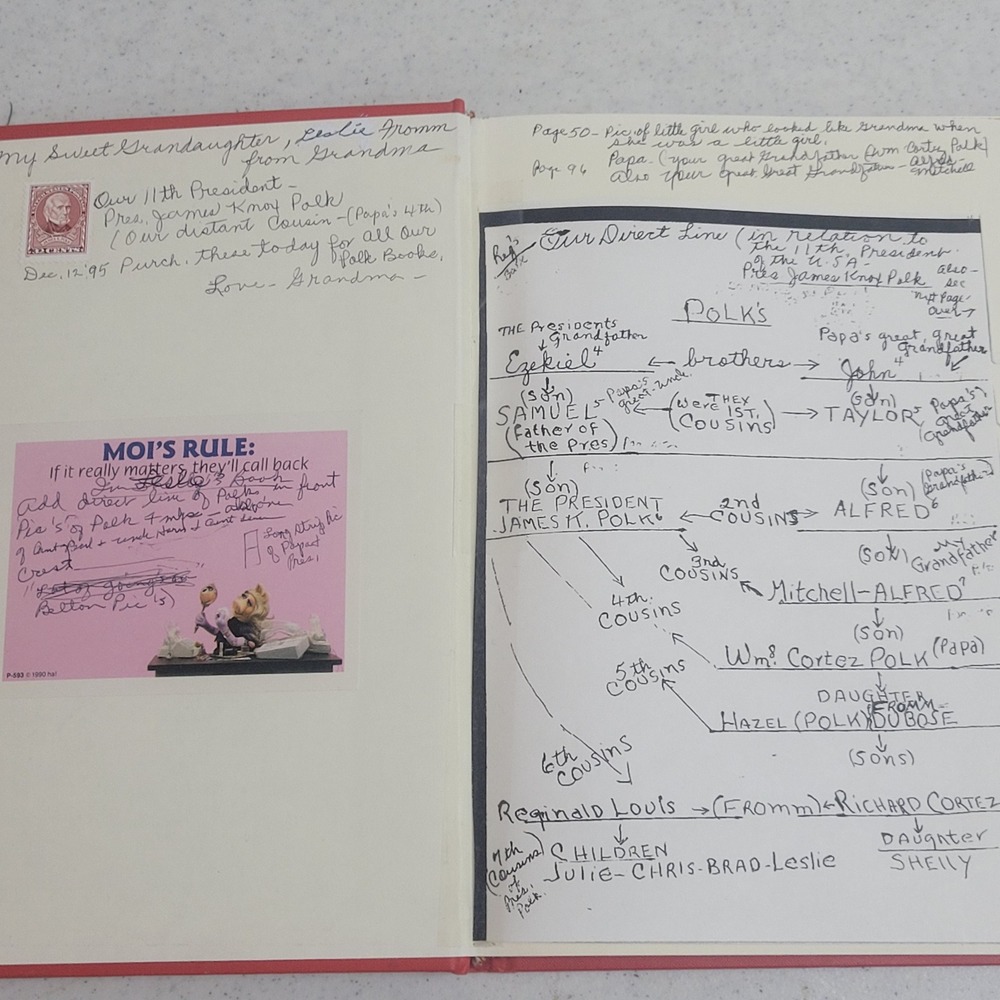 My Sweet Grandaughter, Leslie Fromm
from Grandma
Our 11th President -
Pres. James Knox Polk
(Our distant Cousin - (Papa's 4th)
Dec, 12 '95 Purch, these today for all our
Polk Books,
Love - Grandma -
MOI'S RULE:
If it really matters, they'll call back
Add direct line of Polks in front
Pic's of Polk
Long String Pic
of Papa &
Pres,
Crest
Belton Pic's)
P-593 © 1990 ha!
Page 50 - Pic, of little girl who looked like Grandma when
she was a little girl,
Page 96 Papa - (your great Grandfather (Wm Cortez Polk)
Also your great Great Grandfather - Alfred -
Mitchell
Our Direct Line (in relation to
the 11th, President
of the U.S.A -
Pres James Knox Polk
also -
see
next Page -
Over →
POLK'S
THE Presidents
Grandfather
Papa's great, great
Grandfather
Ezekiel 4 ← brothers → John 4
(son)
(son)
SAMUEL 5 - Papa's great-uncle. ← (were THEY 1ST, COUSINS) → TAYLOR 5 Papa's great Grandfather
(father of
the Pres)
(son)
(son) (Papa's Grandfather)
THE PRESIDENT
JAMES K. POLK 6 ← 2nd COUSINS → ALFRED 6
(son) My Grandfather
3rd
COUSINS
Mitchell-ALFRED 7
4th
COUSINS
(son)
Wm 8 Cortez POLK (Papa)
5th
COUSINS
DAUGHTER
FROMM
HAZEL (POLK) DUBOSE
(sons)
6th
COUSINS
Reginald Louis → (Fromm) ← RICHARD CORTEZ
7th
Cousins
of
Pres,
Polk
CHILDREN
Julie - CHRIS - BRAD - Leslie
DAUGHTER
SHELLY